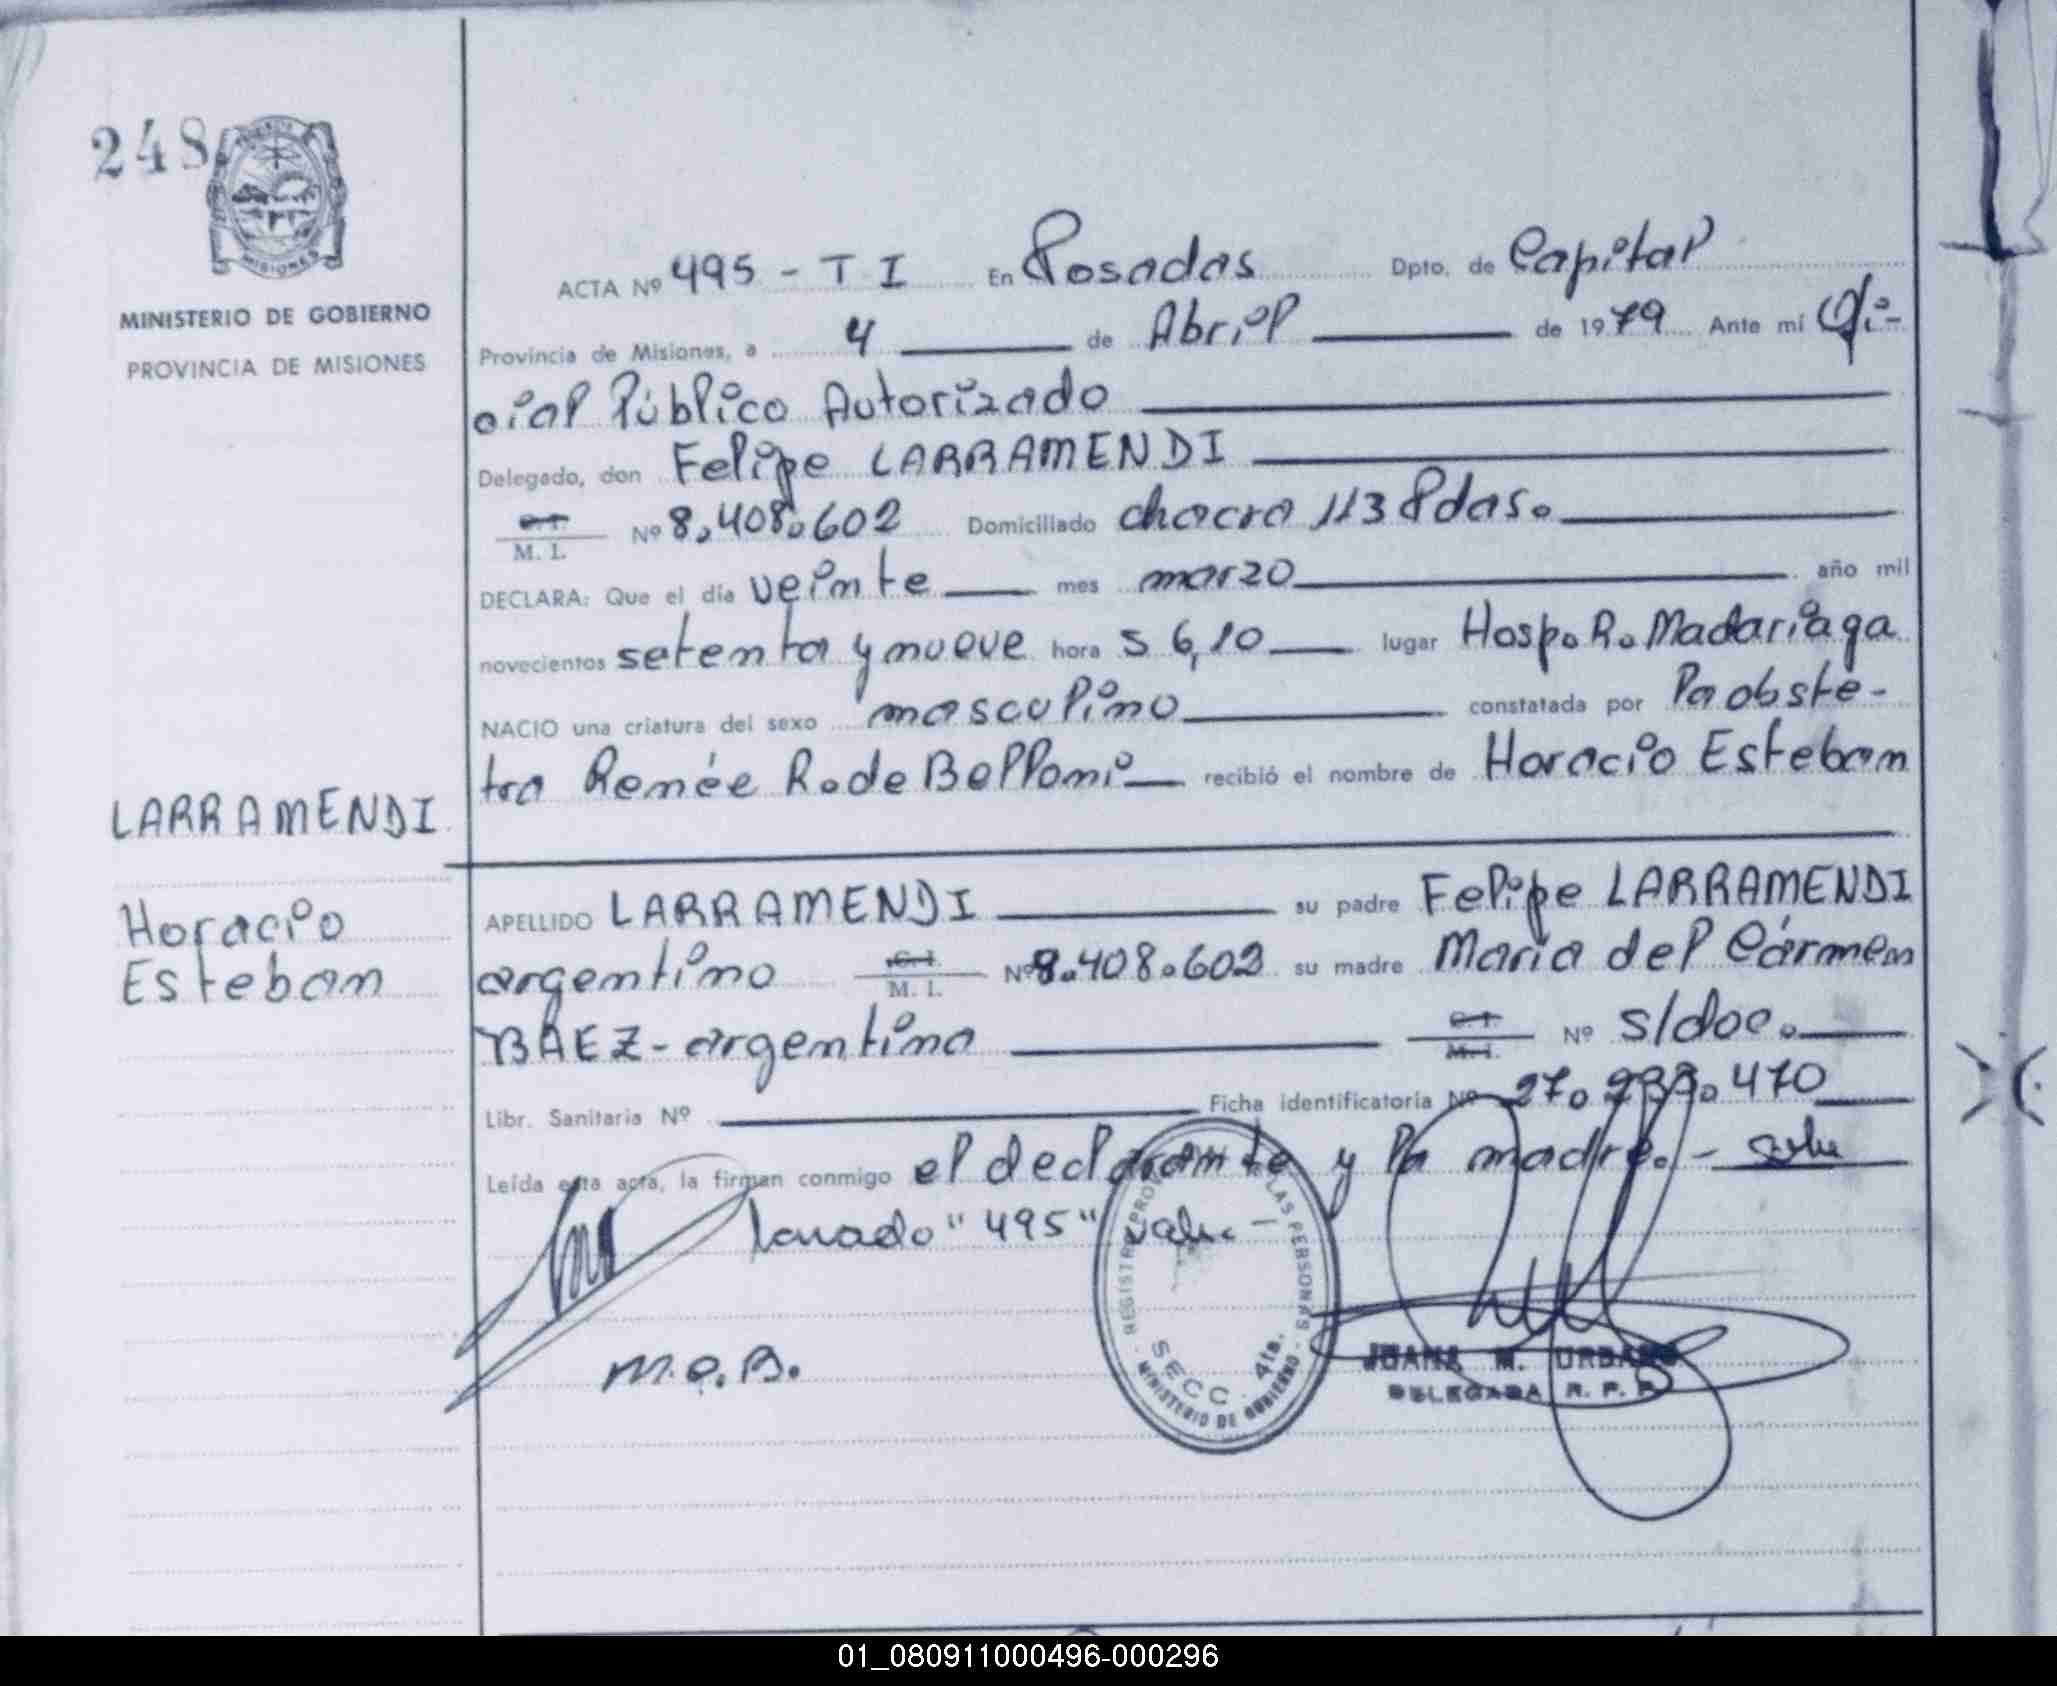 248
MISIONES
MINISTERIO DE GOBIERNO
PROVINCIA DE MISIONES
ACTA Nº 495 - T I En Posadas Dpto. de Capital
Provincia de Misiones, a 4 de Abril de 1979 Ante mi Ofi-
cial Público Autorizado
Delegado, don Felipe LARRAMENDI
C.I.
M. I. Nº 8.408.602 Domiciliado chacra 113 Pdas.
DECLARA: Que el día veinte mes marzo año mil
novecientos setenta y nueve hora s 6,10 lugar Hosp. R. Madariaga
NACIO una criatura del sexo masculino constatada por la obste-
tra Renée R. de Bellomi recibió el nombre de Horacio Esteban
LARRAMENDI
Horacio
Esteban
APELLIDO LARRAMENDI su padre Felipe LARRAMENDI
argentino C.I.
M. I. Nº 8.408.602 su madre María del Cármen
BAEZ - argentina C.I.
M.I. Nº s/doc.
Libr. Sanitaria Nº Ficha identificatoria Nº 27. . 470
Leída esta acta, la firman conmigo el declarante y la madre. - sobre
borrado "495" vale. -
M.C.B.
REGISTRO PROV LAS PERSONAS
SECC. 4ta.
MINISTERIO DE GOBIERNO
JUANA M. URBANO
DELEGADA R. P. P.
01_080911000496-000296